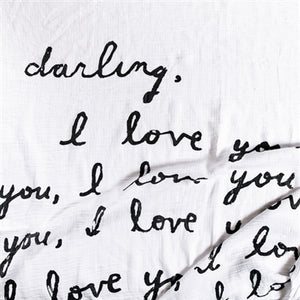 darling,
I love yo
you, I lov you
you, I love y ov
I love y I lov
I lo